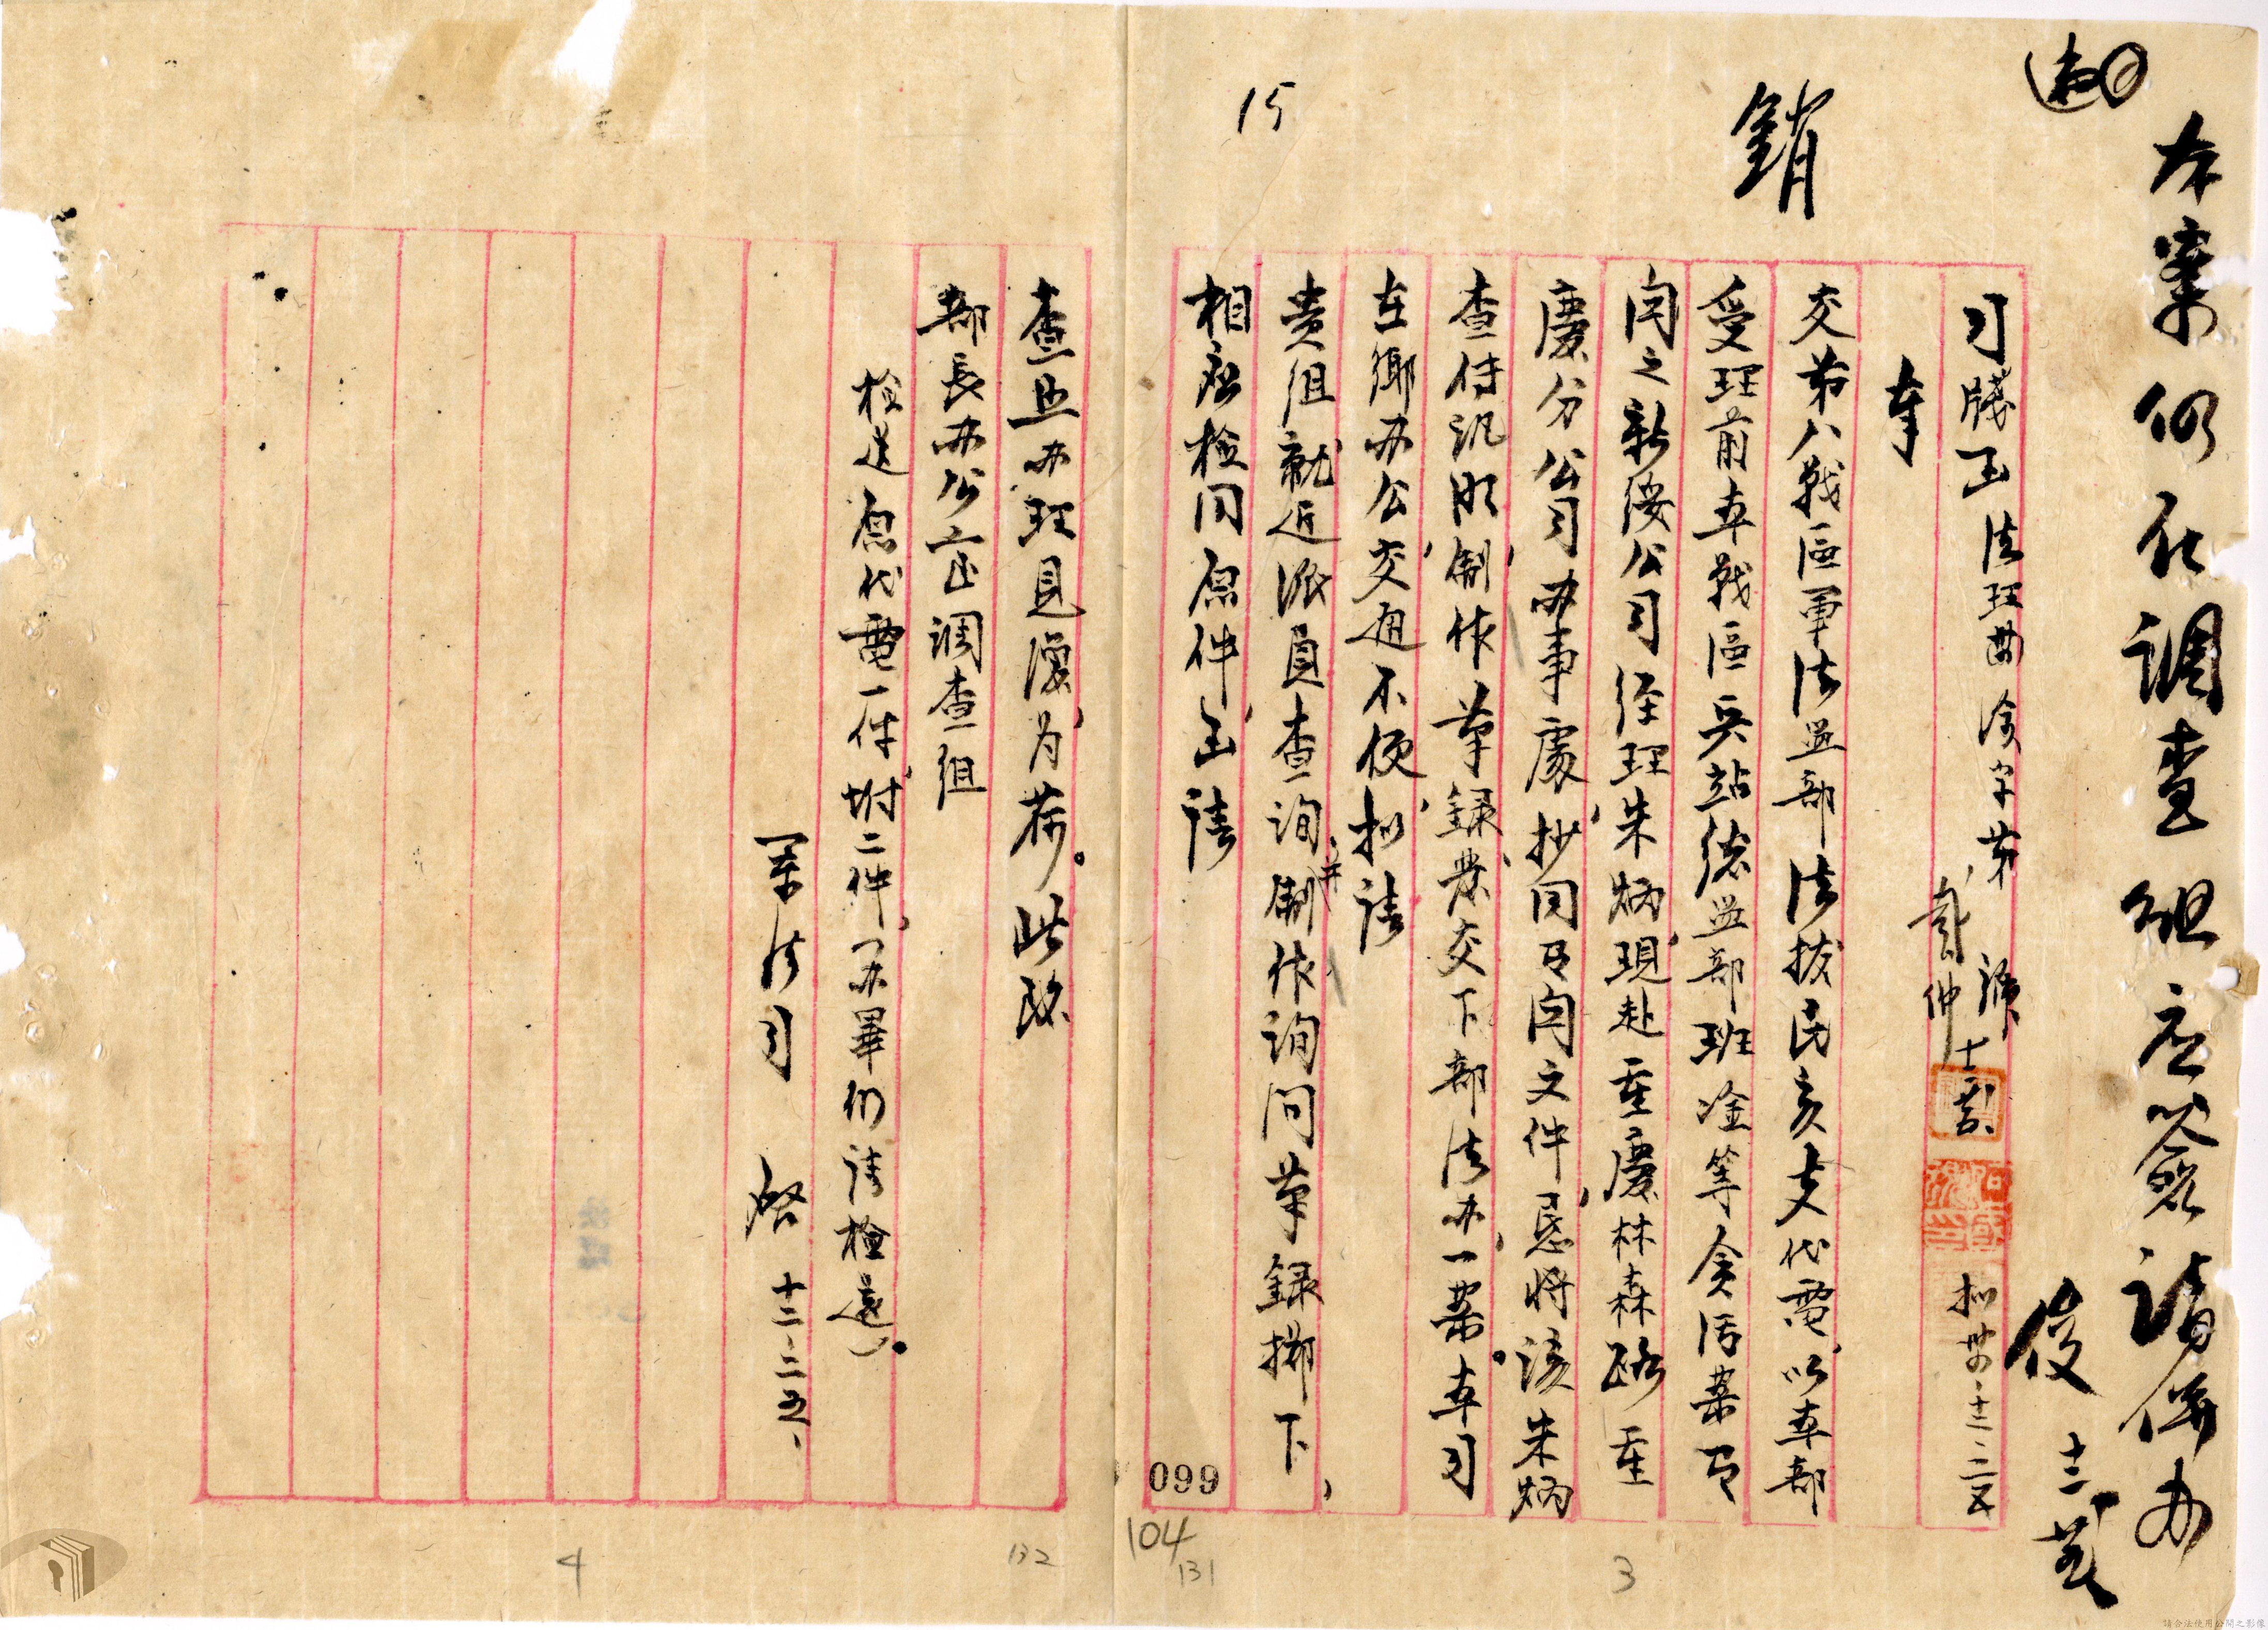 本案仍代調查組应簽請併办
俊 十二
銷
15
司牋函 法理茜渝字第 號 拟 卅 十二 二五
奉
交第八戰區軍法监部法拔民亥支代電，以本部
受理前本戰區兵站總监部班淦等貪污案有
関之新綏公司經理朱炳，現赴重慶林森路重
慶分公司办事處，抄同有関文件，懇將該朱炳
查傳訊明，制作筆錄，發交下部法办一案。本司
在鄉办公，交通不便，拟請
貴組就近派員查詢，并制作詢問筆錄擲下，
相应檢同原件，函請
查照办理見復，为荷。此致
部長办公室調查組
檢送原代電一件，附二件，（办畢仍請檢還）。
軍法司 啓 十二、二五、
099
104
131
132
3
4
請合法使用公開之影像